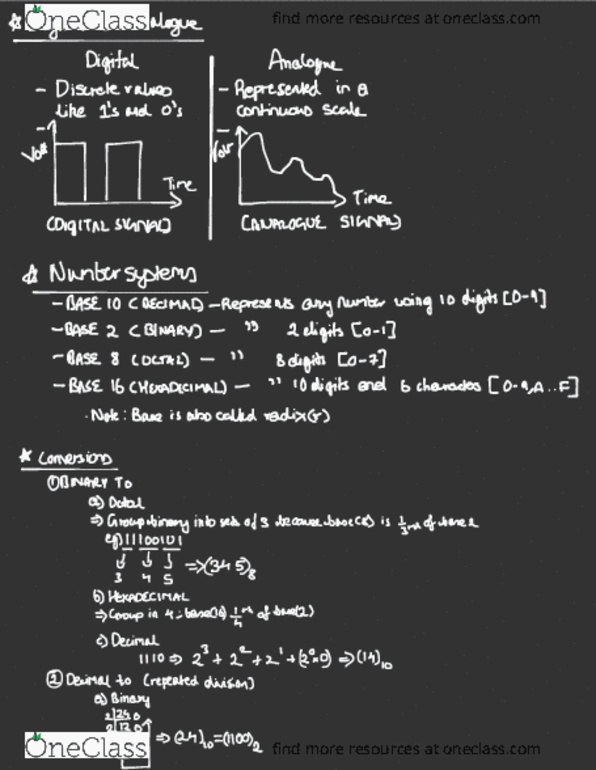 OneClass
find more resources at oneclass.com
alogue
Digital
- Discrete values
like 1's and 0's
Volt
Time
(DIGITAL SIGNAL)
Analogue
- Represented in a
continuous scale
Volt
Time
(ANALOGUE SIGNAL)
Number systems
- BASE 10 (DECIMAL) - Represents any number using 10 digits [0-9]
- BASE 2 (BINARY) - " 2 digits [0-1]
- BASE 8 (OCTAL) - " 8 digits [0-7]
- BASE 16 (HEXADECIMAL) - " 10 digits and 6 characters [0-9,A..F]
· Note: Base is also called radix(r)
Conversions
① BINARY TO
a) Octal
⇒ Group binary into sets of 3 because base(8) is 1/3 rd of base 2
eg) 11100101
3 4 5 ⇒ (345)8
b) HEXADECIMAL
⇒ Group in 4 ∴ base(16) 1/4 of base(2)
c) Decimal
1110 ⇒ 2^3 + 2^2 + 2^1 + (2^0×0) ⇒ (14)10
② Decimal to (repeated division)
a) Binary
2|24 0
2|12 0
⇒ (24)10 = (1100)2
OneClass
find more resources at oneclass.com